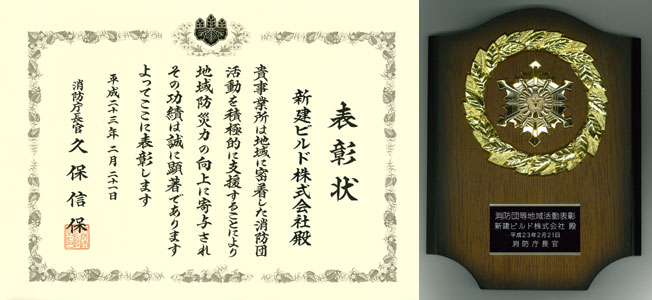 表彰状
新建ビルド株式会社殿
貴事業所は地域に密着した消防団
活動を積極的に支援することにより
地域防災力の向上に寄与され
その功績は誠に顕著であります
よってここに表彰します
平成二十三年二月二十一日
消防庁長官 久保信保
消防団等地域活動表彰
新建ビルド株式会社 殿
平成23年2月21日
消防庁長官